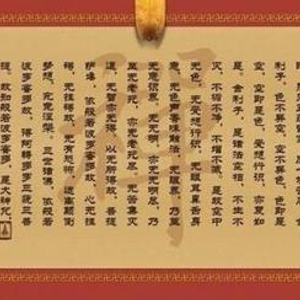 利子，色不異空，空不異色，色即是
空，空即是色。受想行識，亦復如
是。舍利子，是諸法空相，不生不
滅，不垢不淨，不增不減，是故空中
無色。無受想行識，無眼耳鼻舌身
意，無色聲香味觸法，無眼界，乃至
無意識界，無無明，亦無無明盡，乃
至無老死，亦無老死盡，無苦集滅
道，無智亦無得。以無所得故，菩提
薩埵，依般若波羅蜜多故，心無罣
礙，無罣礙故，無有恐怖，遠離顛倒
夢想，究竟涅槃。三世諸佛，依般若
波羅蜜多故，得阿耨多羅三藐三菩
提。故知般若波羅蜜多，是大神咒
禪